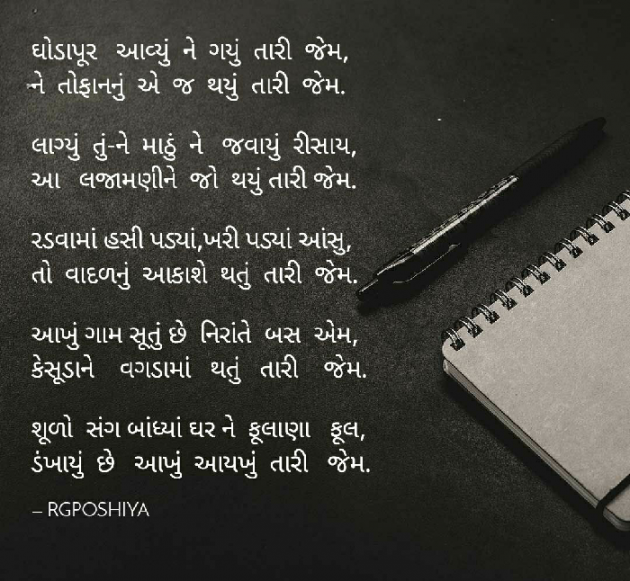 ઘોડાપૂર આવ્યું ને ગયું તારી જેમ,
ને તોફાનનું એ જ થયું તારી જેમ.
લાગ્યું તું-ને માઠું ને જવાયું રીસાય,
આ લજામણીને જો થયું તારી જેમ.
રડવામાં હસી પડ્યાં,ખરી પડ્યાં આંસુ,
તો વાદળનું આકાશે થતું તારી જેમ.
આખું ગામ સૂતું છે નિરાંતે બસ એમ,
કેસૂડાને વગડામાં થતું તારી જેમ.
શૂળો સંગ બાંધ્યાં ઘર ને ફૂલાણા ફૂલ,
ડંખાયું છે આખું આયખું તારી જેમ.
– RGPOSHIYA